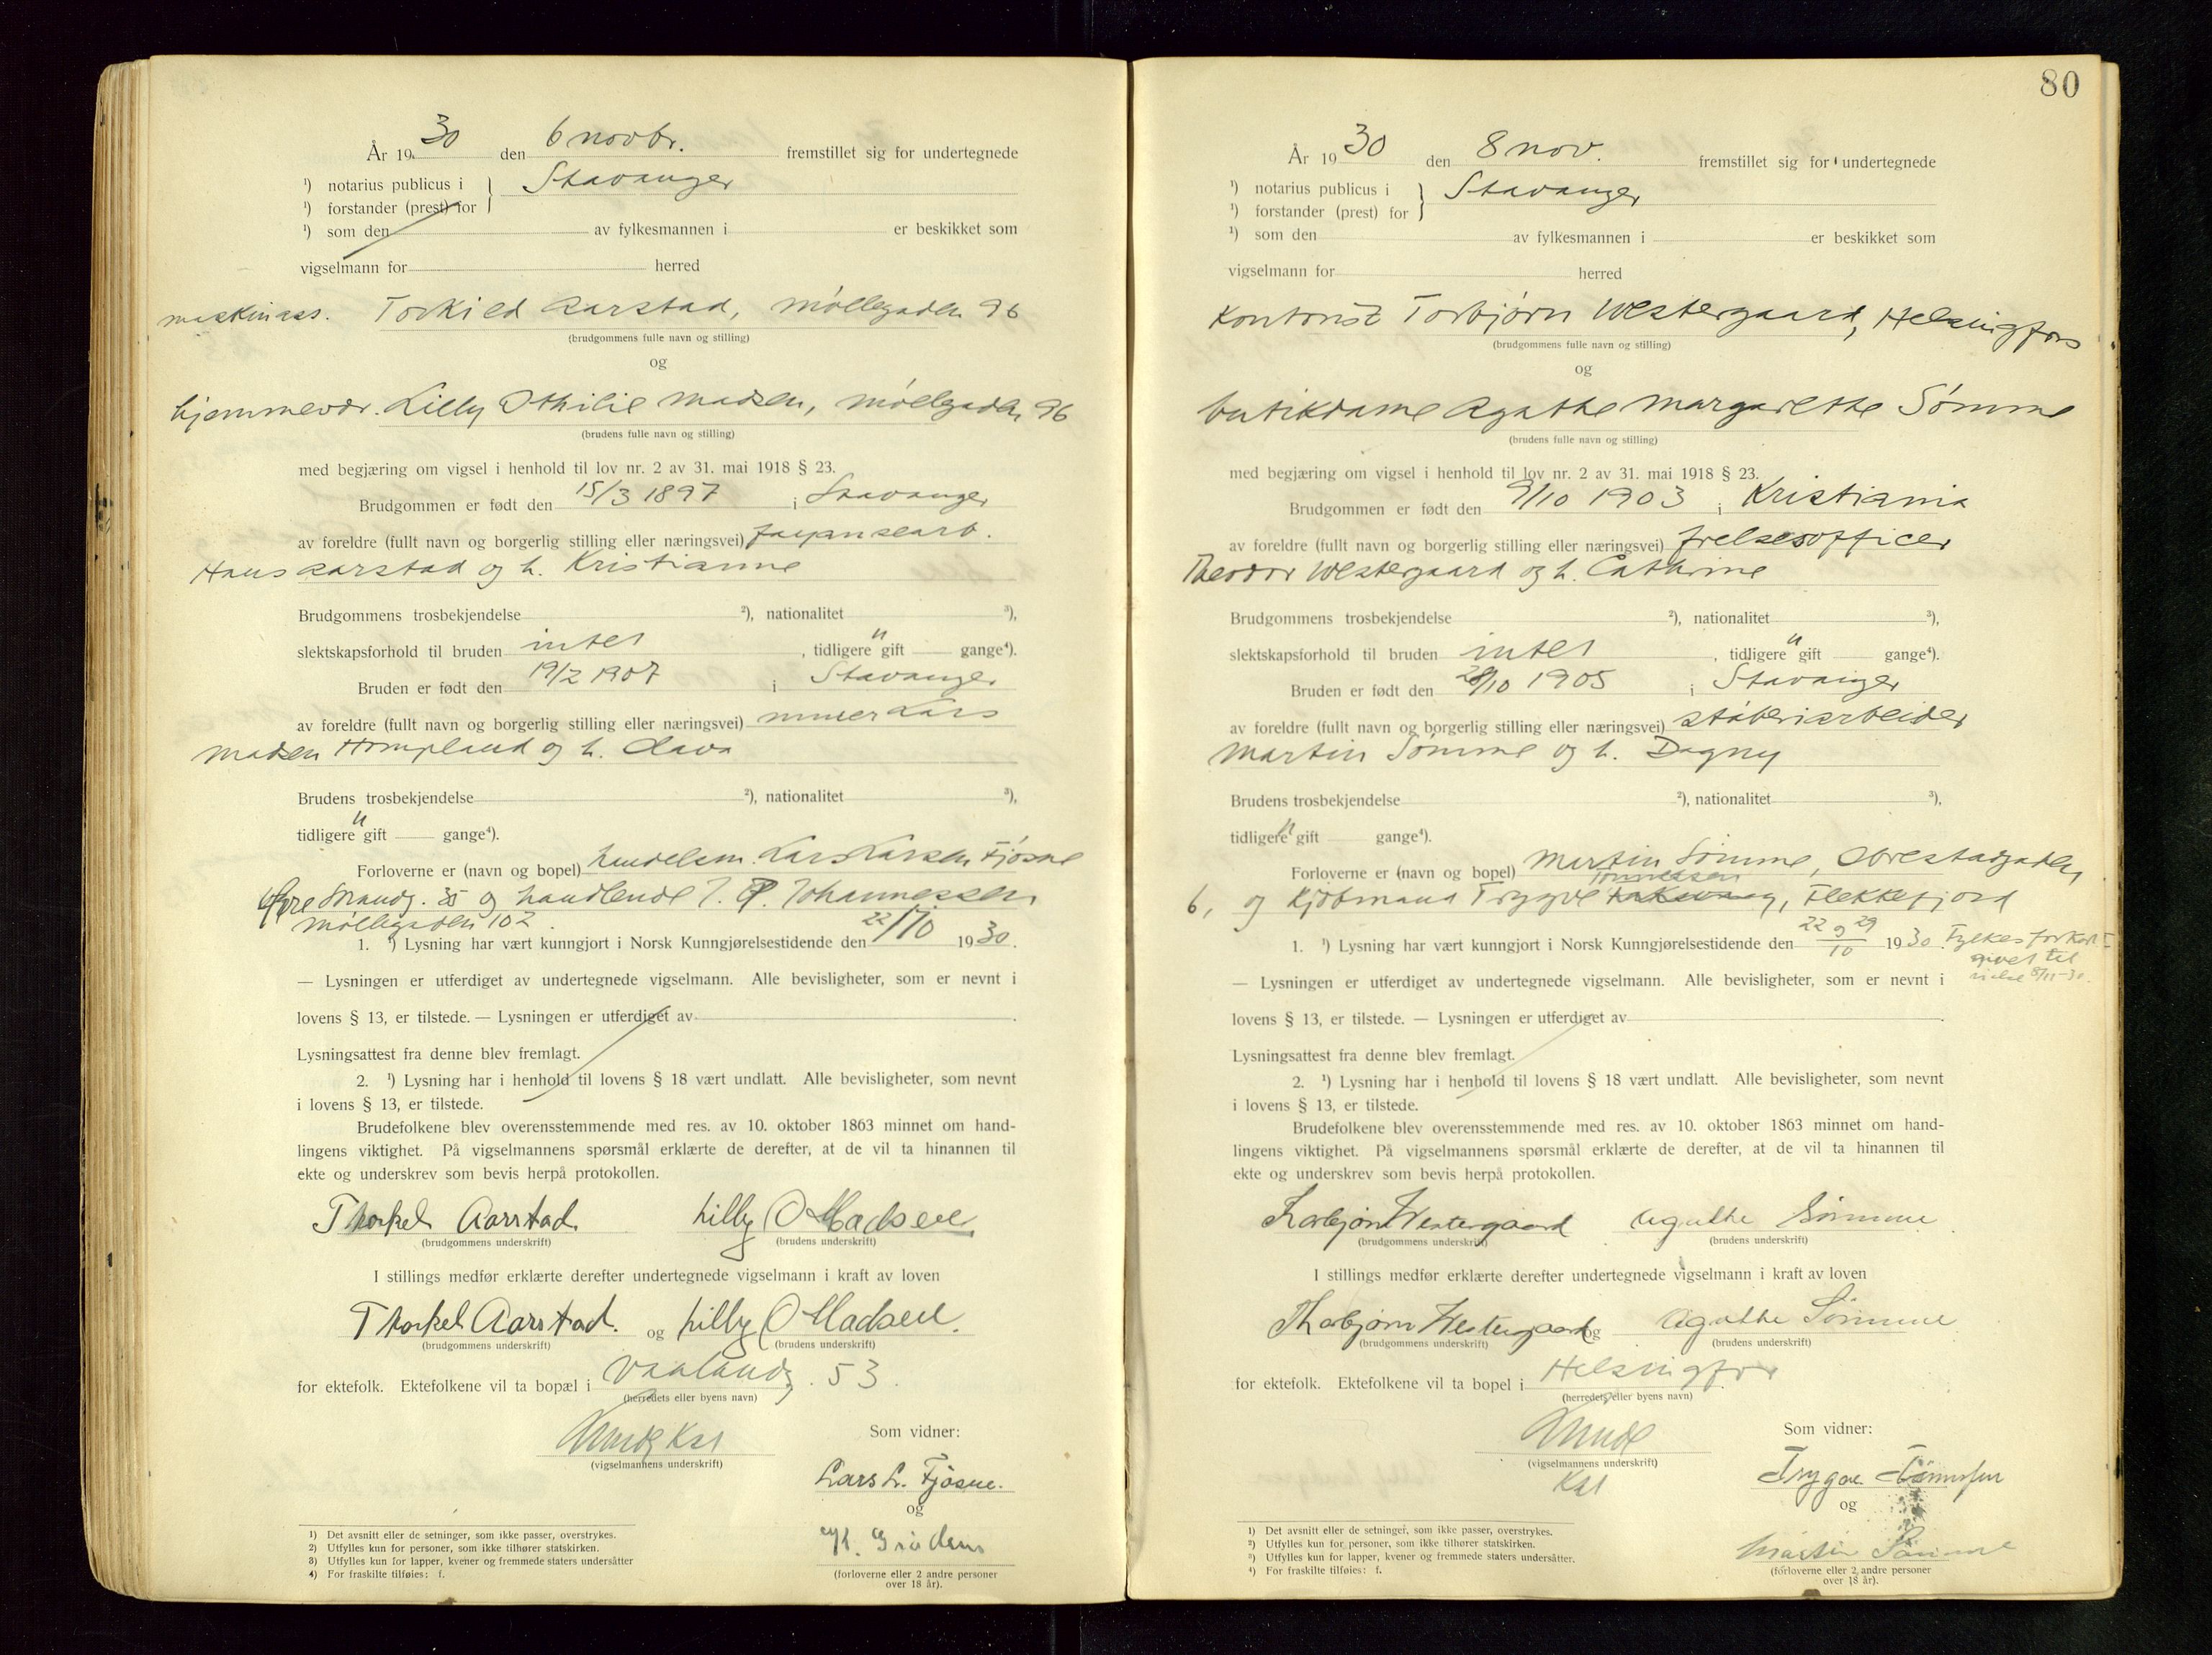 År 1930 den 6 novbr. fremstillet sig for undertegnede
¹) notarius publicus i } Stavanger
¹) forstander (prest) for
¹) som den av fylkesmannen i er beskikket som
vigselmann for herred
maskinass. Torkild Aarstad, Møllegaden 96
(brudgommens fulle navn og stilling)
og
hjemmevær. Lilly Othilie Madsen, Møllegaden 96
(brudens fulle navn og stilling)
med begjæring om vigsel i henhold til lov nr. 2 av 31. mai 1918 § 23.
Brudgommen er født den 15/3 1897 i Stavanger
av foreldre (fullt navn og borgerlig stilling eller næringsvei) fayansearb.
Hans Aarstad og h. Kristianne
Brudgommens trosbekjendelse ²), nationalitet ³),
slektskapsforhold til bruden intet, tidligere u gift gange⁴).
Bruden er født den 19/2 1907 i Stavanger
av foreldre (fullt navn og borgerlig stilling eller næringsvei) murer Lars
Madsen Hompland og h. Olava
Brudens trosbekjendelse ²), nationalitet ³),
tidligere u gift gange⁴).
Forloverne er (navn og bopel) handelsm. Lars Larsen Fjøsne
Øvre Strandg. 35 og handlende J. P. Johannessen
Møllegaden 102.
1. ¹) Lysning har vært kunngjort i Norsk Kunngjørelsestidende den 22/10 1930.
— Lysningen er utferdiget av undertegnede vigselmann. Alle bevisligheter, som er nevnt i
lovens § 13, er tilstede. — Lysningen er utferdiget av
Lysningsattest fra denne blev fremlagt.
2. ¹) Lysning har i henhold til lovens § 18 vært undlatt. Alle bevisligheter, som nevnt
i lovens § 13, er tilstede.
Brudefolkene blev overensstemmende med res. av 10. oktober 1863 minnet om hand-
lingens viktighet. På vigselmannens spørsmål erklærte de derefter, at de vil ta hinannen til
ekte og underskrev som bevis herpå protokollen.
Thorkel Aarstad. Lilly O Madsen.
(brudgommens underskrift) (brudens underskrift)
I stillings medfør erklærte derefter undertegnede vigselmann i kraft av loven
Thorkel Aarstad. og Lilly O Madsen.
(brudgommens underskrift) (brudens underskrift)
for ektefolk. Ektefolkene vil ta bopæl i Vaalandg. 53.
(herredets eller byens navn)
(vigselmannens underskrift)
Som vidner:
Lars L. Fjøsne.
og
(forloverne eller 2 andre personer
over 18 år).
1) Det avsnitt eller de setninger, som ikke passer, overstrykes.
2) Utfylles kun for personer, som ikke tilhører statskirken.
3) Utfylles kun for lapper, kvener og fremmede staters undersåtter
4) For fraskilte tilføies: f.
80
År 1930 den 8 nov. fremstillet sig for undertegnede
¹) notarius publicus i } Stavanger
¹) forstander (prest) for
¹) som den av fylkesmannen i er beskikket som
vigselmann for herred
Kontorist Torbjørn Westergaard, Helsingfors
(brudgommens fulle navn og stilling)
og
butikdame Agathe Margarethe Sømme
(brudens fulle navn og stilling)
med begjæring om vigsel i henhold til lov nr. 2 av 31. mai 1918 § 23.
Brudgommen er født den 9/10 1903 i Kristiania
av foreldre (fullt navn og borgerlig stilling eller næringsvei) frelsesofficer
Theodor Westergaard og h. Cathrine
Brudgommens trosbekjendelse ²), nationalitet ³),
slektskapsforhold til bruden intet, tidligere u gift gange⁴).
Bruden er født den /10 1905 i Stavanger
av foreldre (fullt navn og borgerlig stilling eller næringsvei) støberiarbeider
Martin Sømme og h. Dagny
Brudens trosbekjendelse ²), nationalitet ³),
tidligere u gift gange⁴).
Forloverne er (navn og bopel) Martin Sømme, Obrestadgaden
6, og Kjøbmand Trygve Tønnessen, Flekkefjord
1. ¹) Lysning har vært kunngjort i Norsk Kunngjørelsestidende den 22 o 29/10 1930. Fylkesforkort
givet til
vielse 8/11-30.
— Lysningen er utferdiget av undertegnede vigselmann. Alle bevisligheter, som er nevnt i
lovens § 13, er tilstede. — Lysningen er utferdiget av
Lysningsattest fra denne blev fremlagt.
2. ¹) Lysning har i henhold til lovens § 18 vært undlatt. Alle bevisligheter, som nevnt
i lovens § 13, er tilstede.
Brudefolkene blev overensstemmende med res. av 10. oktober 1863 minnet om hand-
lingens viktighet. På vigselmannens spørsmål erklærte de derefter, at de vil ta hinannen til
ekte og underskrev som bevis herpå protokollen.
Torbjørn Westergaard Agathe Sømme
(brudgommens underskrift) (brudens underskrift)
I stillings medfør erklærte derefter undertegnede vigselmann i kraft av loven
Thorbjørn Westergaard og Agathe Sømme
(brudgommens underskrift) (brudens underskrift)
for ektefolk. Ektefolkene vil ta bopel i Helsingfor
(herredets eller byens navn)
(vigselmannens underskrift)
Som vidner:
Trygve Tønnessen
og
Martin Sømme
(forloverne eller 2 andre personer
over 18 år).
1) Det avsnitt eller de setninger, som ikke passer, overstrykes.
2) Utfylles kun for personer, som ikke tilhører statskirken.
3) Utfylles kun for lapper, kvener og fremmede staters undersåtter.
4) For fraskilte tilføies: f.